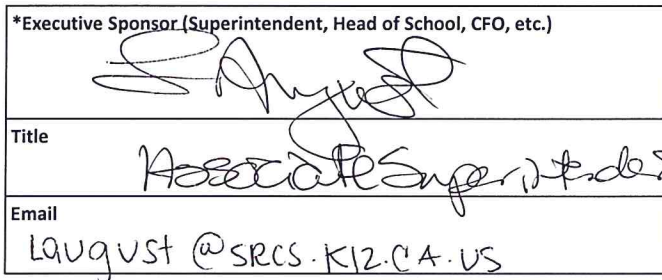 *Executive Sponsor (Superintendent, Head of School, CFO, etc.)
L August
Title
Associate Superintenden
Email
Laugust @SRCS.K12.CA.US